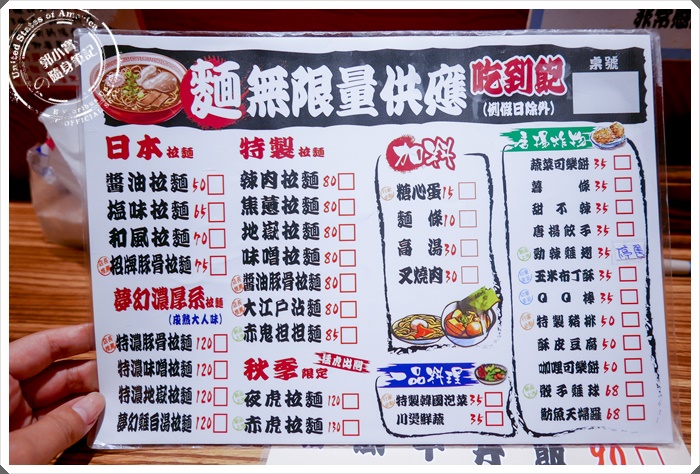 United States of America
郭小寶の
隨身筆記
OFFICIAL
麵無限量供應 吃到飽
(例假日除外)
桌號
日本拉麵
醬油拉麵 50
塩味拉麵 65
和風拉麵 70
招牌豚骨拉麵 75
夢幻濃厚系拉麵
(成熟大人味)
特濃豚骨拉麵 120
特濃味噌拉麵 120
特濃地獄拉麵 120
夢幻雞白湯拉麵 120
特製拉麵
辣肉拉麵 80
焦蔥拉麵 80
地獄拉麵 80
味噌拉麵 80
醬油豚骨拉麵 80
大江戶沾麵 80
赤鬼担担麵 85
秋季限定
猛虎出閘
夜虎拉麵 120
赤虎拉麵 130
加料
糖心蛋 15
麵條 10
高湯 30
叉燒肉 30
一品料理
特製韓國泡菜 35
川燙鮮蔬 35
唐揚炸物
蔬菜可樂餅 35
薯條 35
甜不辣 35
唐揚餃子 35
勁辣雞翅 35 停售
玉米布丁酥 35
QQ棒 35
特製豬排 50
酥皮豆腐 50
咖哩可樂餅 50
骰子雞球 68
魴魚天婦羅 68
90